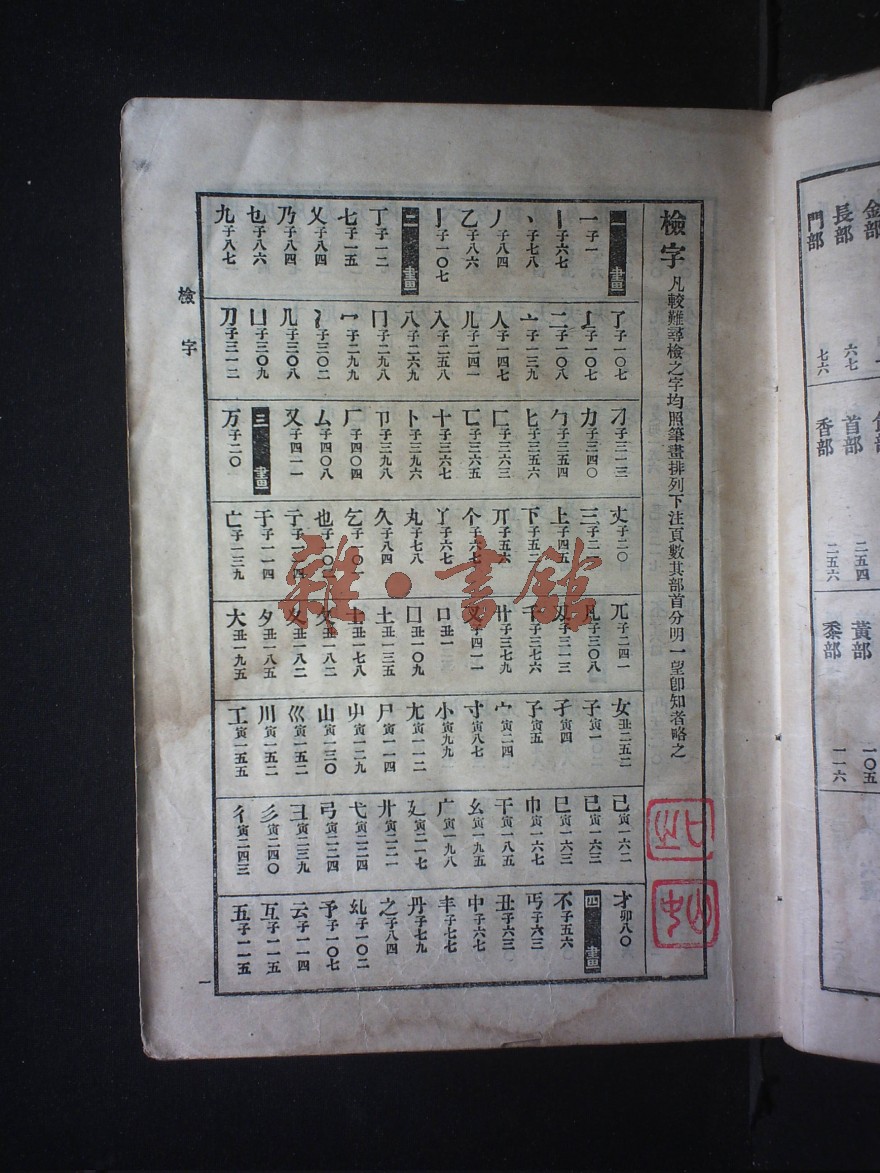 檢字 凡較難尋檢之字均照筆畫排列下注頁數其部首分明一望卽知者略之
一畫
一 子一
丨 子六七
丶 子七八
丿 子八四
乙 子八六
亅 子一〇七
二畫
丁 子一二
七 子一五
乂 子八四
乃 子八四
乜 子八六
九 子八七
了 子一〇七
二 子一〇八
亠 子一三九
人 子一四七
儿 子二四一
入 子二五八
八 子二六一
冂 子二九八
冖 子二九九
冫 子三〇二
几 子三〇八
凵 子三〇九
刀 子三一二
刁 子三一三
力 子三四〇
勹 子三五四
匕 子三五六
匚 子三六三
匸 子三六五
十 子三六七
卜 子三九六
卩 子三九八
厂 子四〇四
厶 子四〇八
又 子四一一
三畫
万 子二〇
丈 子二〇
三 子二一
上 子四五
下 子五一
丌 子五六
个 子六七
丫 子六七
丸 子七八
久 子八四
乞 子一〇一
也 子一〇二
亍 子一一四
于 子一一四
亡 子一三九
兀 子二四一
凡 子三〇八
刄 子三一三
千 子三七六
卄 子三七九
叉 子四一一
口 丑一
囗 丑一〇九
土 丑一三五
士 丑一七八
夂 丑一八二
夊 丑一八二
夕 丑一八五
大 丑一九五
女 丑二五二
子 寅一
孑 寅四
孓 寅五
宀 寅二四
寸 寅八七
小 寅九九
尢 寅一一二
尸 寅一一四
屮 寅一二九
山 寅一三〇
巛 寅一五二
川 寅一五二
工 寅一五五
己 寅一六二
已 寅一六三
巳 寅一六三
巾 寅一六七
干 寅一八五
幺 寅一九五
广 寅一九八
廴 寅二一七
廾 寅二二一
弋 寅二二四
弓 寅二二四
彐 寅二三九
彡 寅二四〇
彳 寅二四三
才 卯八〇
四畫
不 子五六
丐 子六三
丑 子六三
中 子六七
丰 子七七
丹 子七九
之 子八四
乣 子一〇二
予 子一〇七
云 子一一四
互 子一一五
五 子一一五
檢字
一
雜·書館
金部
長部 六七
門部 七六
首部 二五四
香部 二五六
黃部 一〇五
黍部 一一六